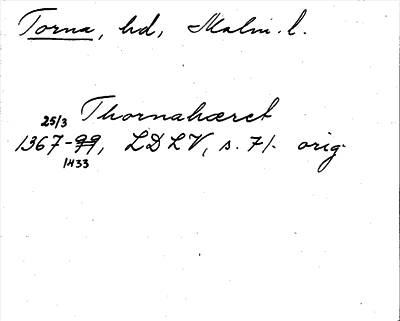 Torna, hd, Malm. l.
25/3 Thornahæret
1367-99, LDLV, s. 71. orig.
1433